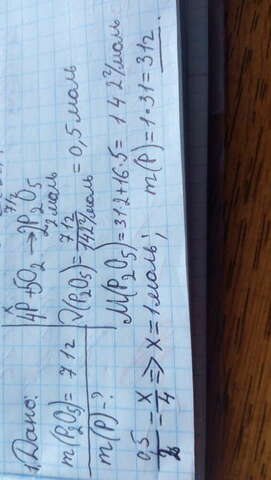 1. Дано:
m(P₂O₅) = 71г
m(P)-?
x 71г
4P + 5O₂ → 2P₂O₅
2 моль
√(P₂O₅) = 71г / 142г/моль = 0,5 моль
M(P₂O₅) = 31·2+16·5 = 142г/моль
0,5/2 - x/4 => x = 1 моль; m(P) = 1·31 = 31г